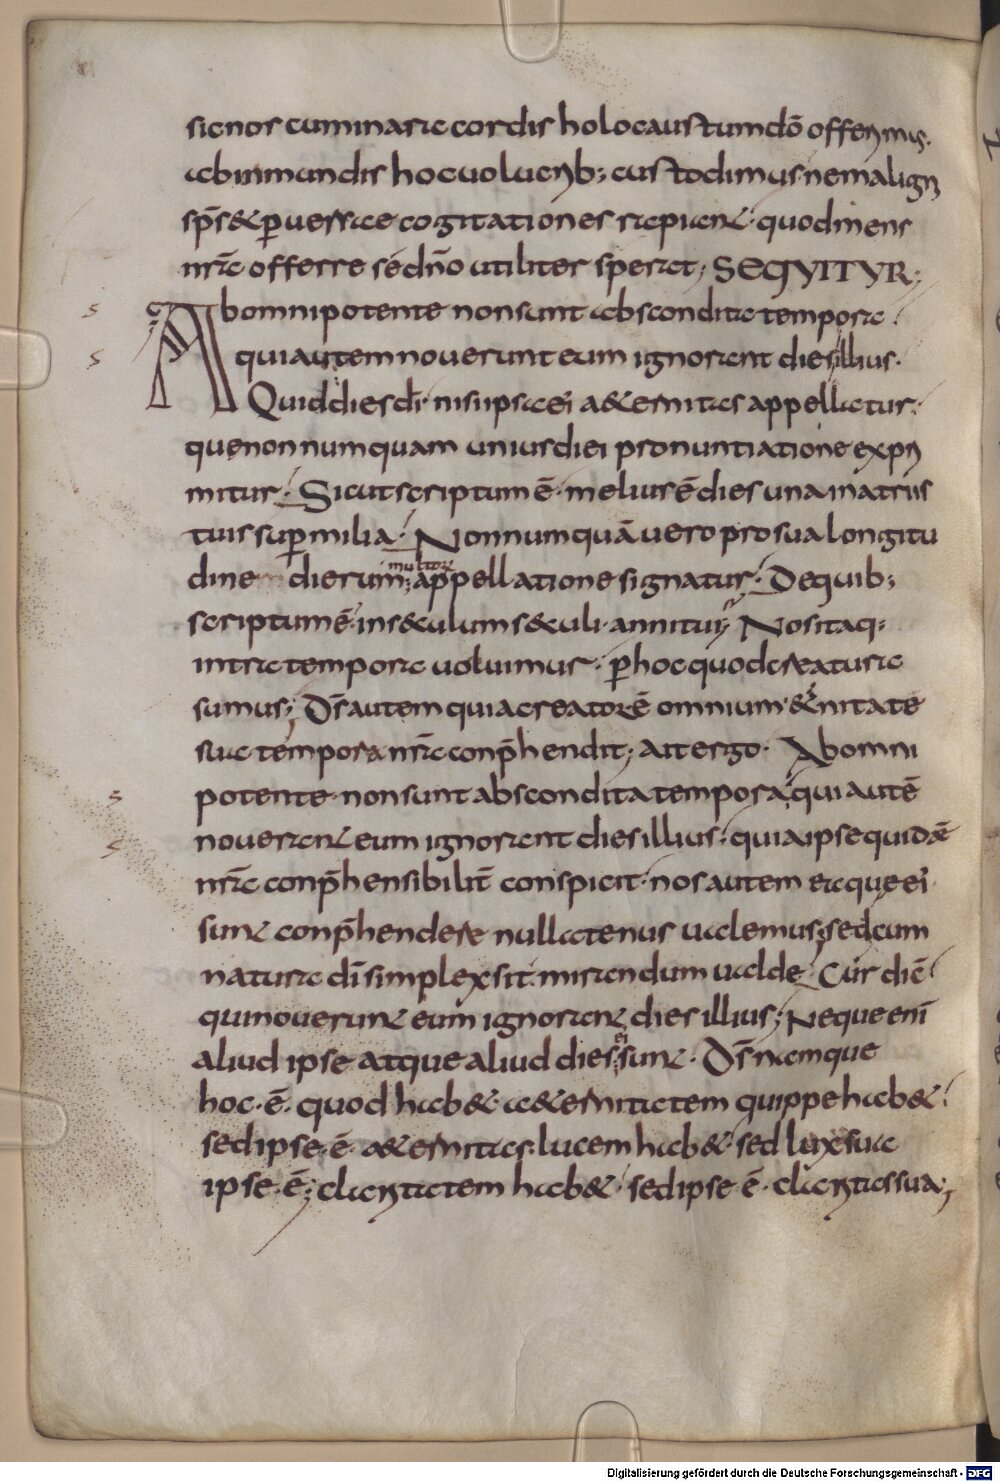 sicnos cum in ara cordis holocaustum dō offerimus.
ab inmundis hoc uolucrib; custodimus· ne malign
sp̄s & p̱uersae cogitationes rapiant· quod mens
nr̄a offerre se dn̄o utiliter sperat; SEQVITVR;
Ab omnipotente non sunt abscondita tempora·
qui autem nouerunt eum ignorant dies illius·
Quid dies dī· nisi ipsa eī aet&ernitas appellatur·
que nonnumquam unius diei pronuntiatione expri
mitur· Sicut scriptum ē· melius ē dies una in atriis
tuis sup̱ milia· Nonnumquā uero pro sua longitu
dine dierum multor appellatione signatur· De quib;
scriptum ē· in s&culum s&culi· annitui; Nos itaq·
intra tempora uoluimur· p̱ hoc quod creaturae
sumus; Dr̄ autem quia creator ē omnium· &ernitate
sua tempora nr̄a conp̄hendit; ait ergo· Ab omni
potente· non sunt abscondita tempora· qui autē
nouerunt eum ignorant dies illius· quia ipse quidē
nr̄a conp̄hensibilit̄ conspicit· nos autem ea que eī
sunt conp̄hendere nullatenus ualemus; sed cum
natura dī simplex sit· mirandum ualde· Cur diē
qui nouerunt eum ignorant dies illius; Neque enī
aliud ipse atque aliud dies ei sunt· Dr̄ namque
hoc· ē· quod hab&· a&ernitatem quippe hab&·
sed ipse· ē· a&ernitas· lucem hab& sed lux sua
ipse· ē; claritatem hab&· sed ipse ē· claritas sua;
Digitalisierung gefördert durch die Deutsche Forschungsgemeinschaft - DFG